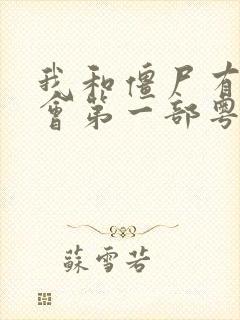 我和僵尸有
會第一部粤
蘇雪若